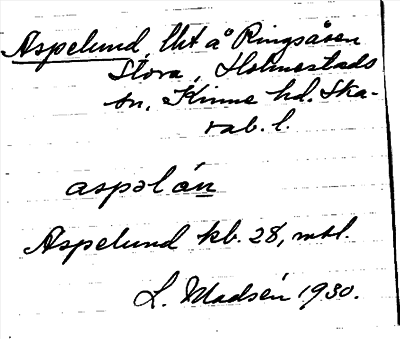 Aspelund, lht å Ringsåsen
Stora, Holmestads
sn, Kinne hd. Ska-
rab. l.
aspəlán
Aspelund kb. 28, mtl.
L. Madsén 1930.